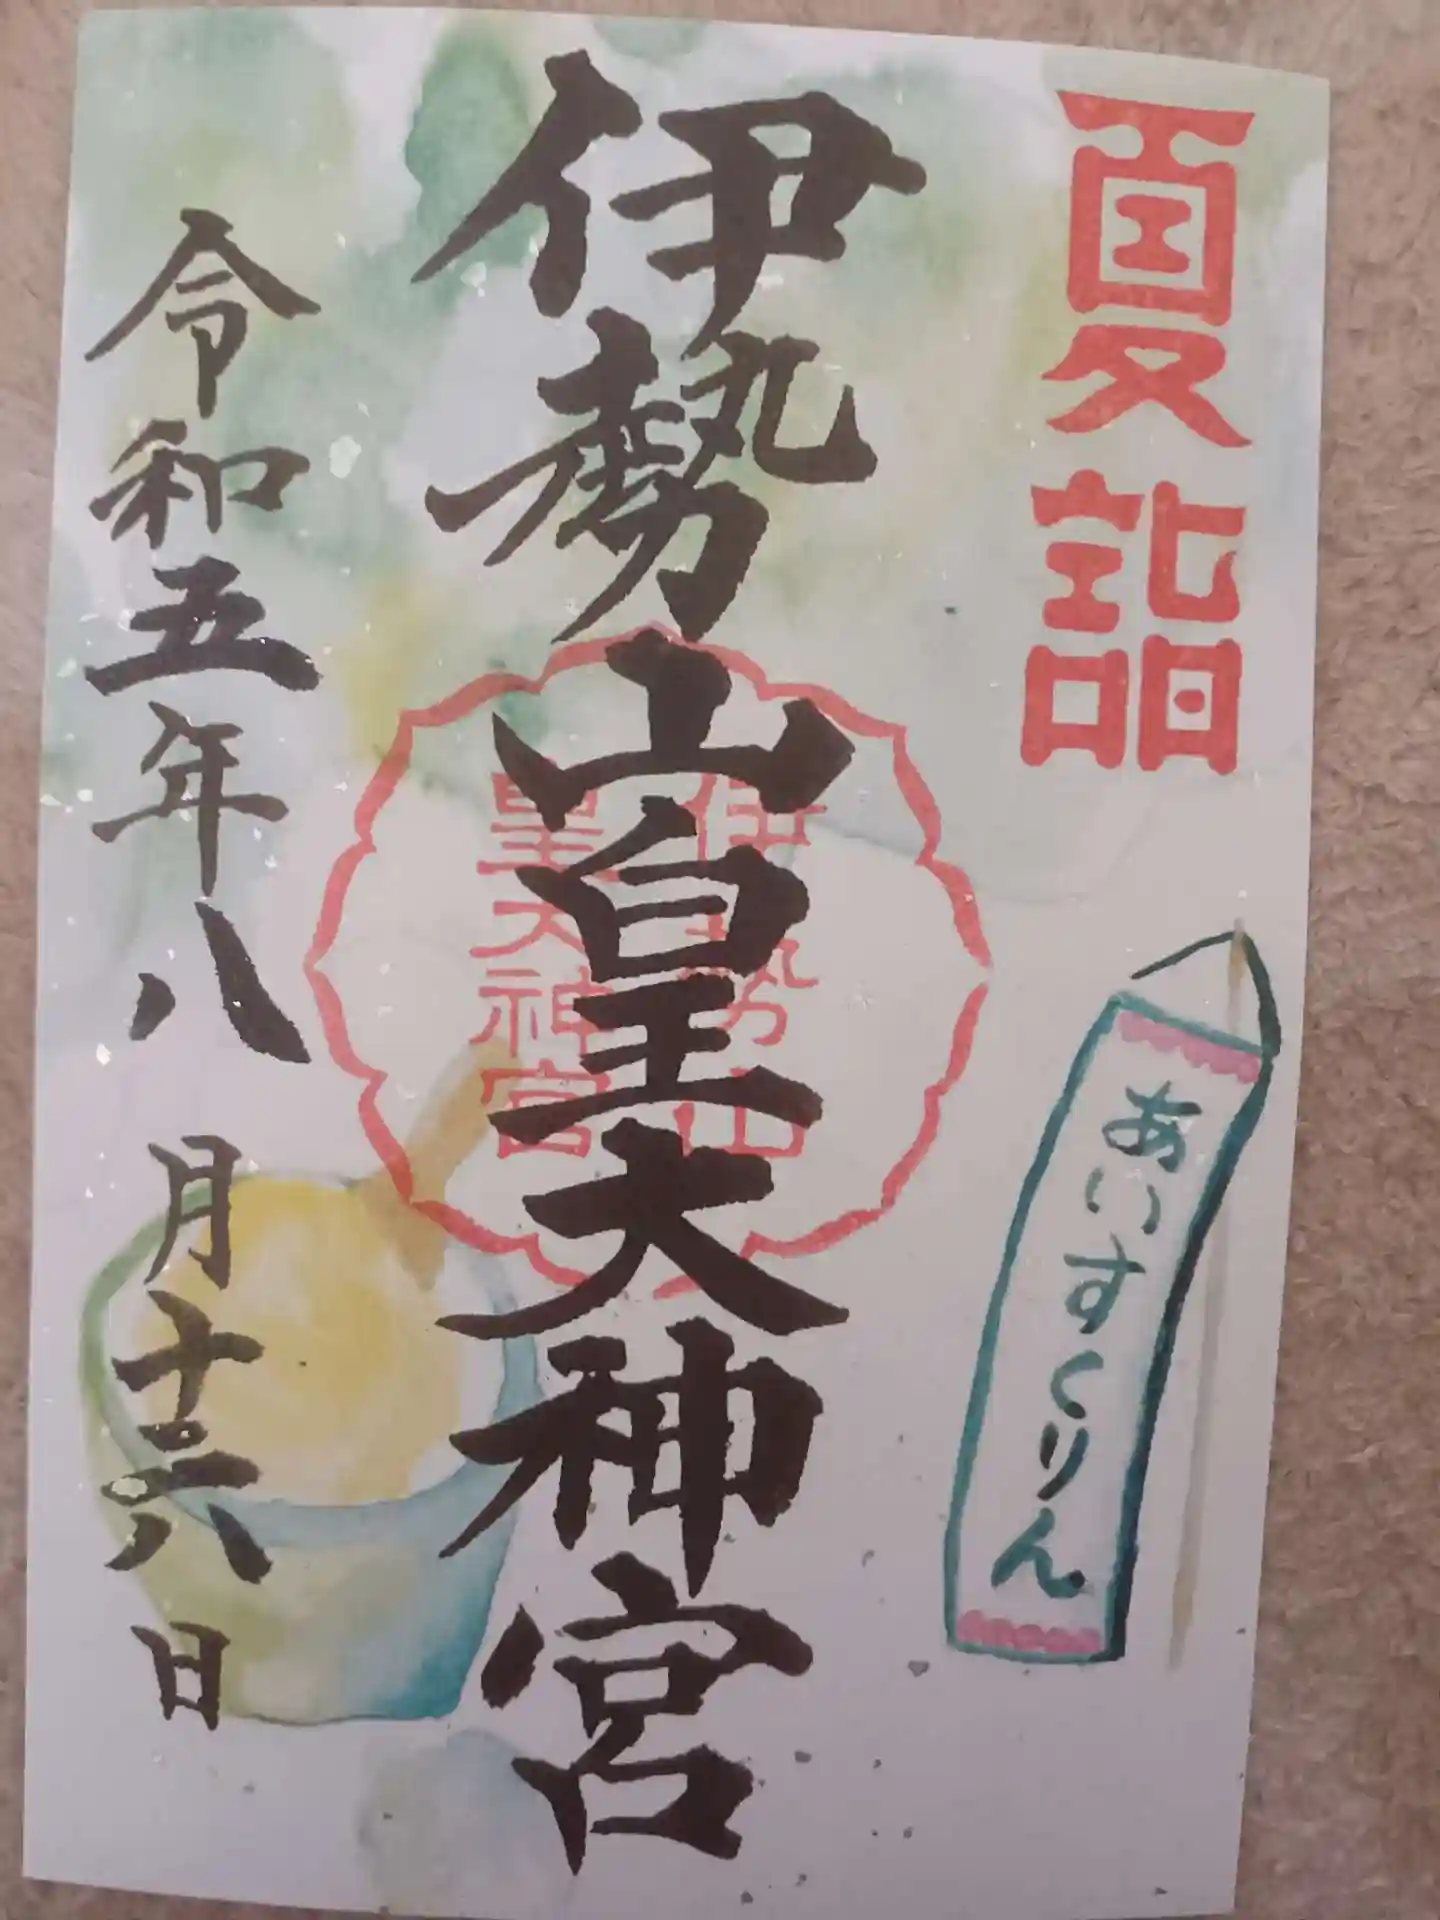 夏詣
あいすくりん
伊勢山皇大神宮
伊勢山
皇大神宮
令和五年八月十六日